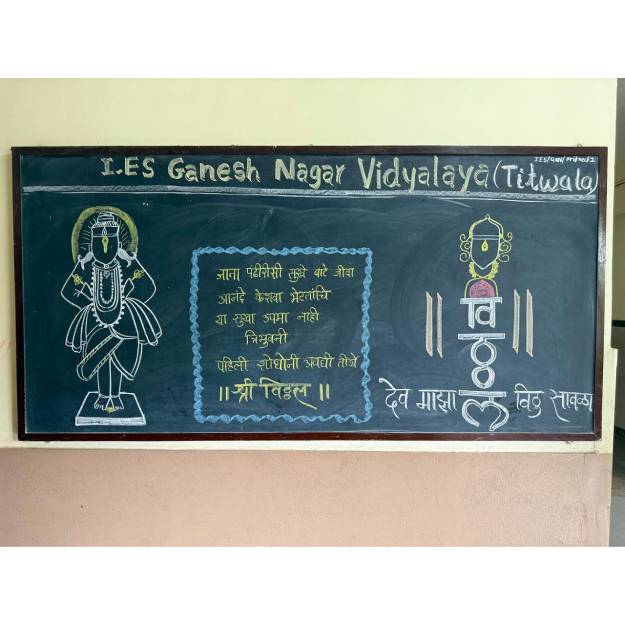 I.ES Ganesh Nagar Vidyalaya (Titwala)
जाता पंढरीसी सुख वाटे जीवा
आनंदे केशवा भेटताचि
या सुखा उपमा नाही
त्रिभुवनी
पाहिली शोधोनी अवघी तीर्थे
॥ श्री विठ्ठल ॥
विठ्ठल
देव माझा विठु सावळा